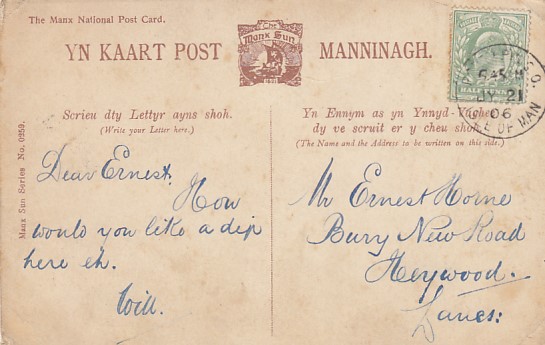 The Manx National Post Card.
YN KAART POST
The
Manx Sun
MANNINAGH.
HALFPENNY
6 45
21
06
ISLE OF MAN
Manx Sun Series No. 0259.
Scrieu dty Lettyr ayns shoh.
(Write your Letter here.)
Dear Ernest,
How
would you like a dip
here eh.
Will.
Yn Ennym as yn Ynnyd-Vaghee
dy ve scruit er y cheu shoh.
(The Name and the Address to be written on this side.)
Mr Ernest Horne
Bury New Road
Heywood.
Lancs: